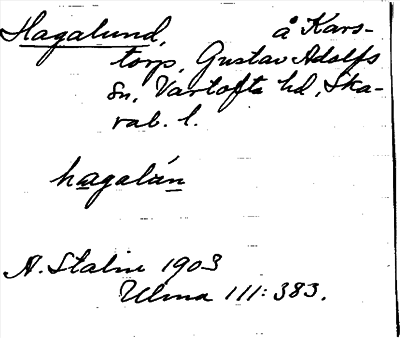 Hagalund, å Kars-
torp, Gustav Adolfs
sn, Vartofta hd, Ska-
rab. l.
hagalún
A. Stalin 1903
Ulma 111:383.